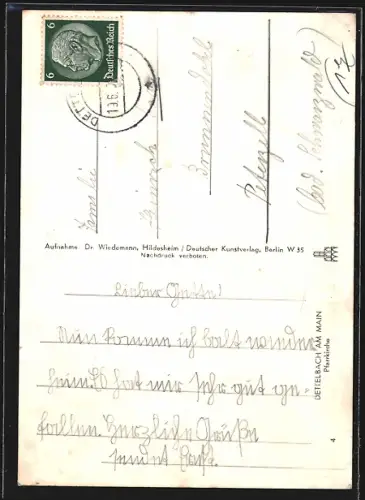 6 Deutsches Reich 6
DETTE
19.6.
Familie
Heinrich
Peterzell
(17)
Aufnahme: Dr. Wiedemann, Hildesheim / Deutscher Kunstverlag, Berlin W 35
Nachdruck verboten.
DETTELBACH AM MAIN
Pfarrkirche
4
Lieber Gette!
Nun komme ich balt wieder
heim. Es hat mir sehr gut ge-
fallen. Herzliche Grüße
sendet